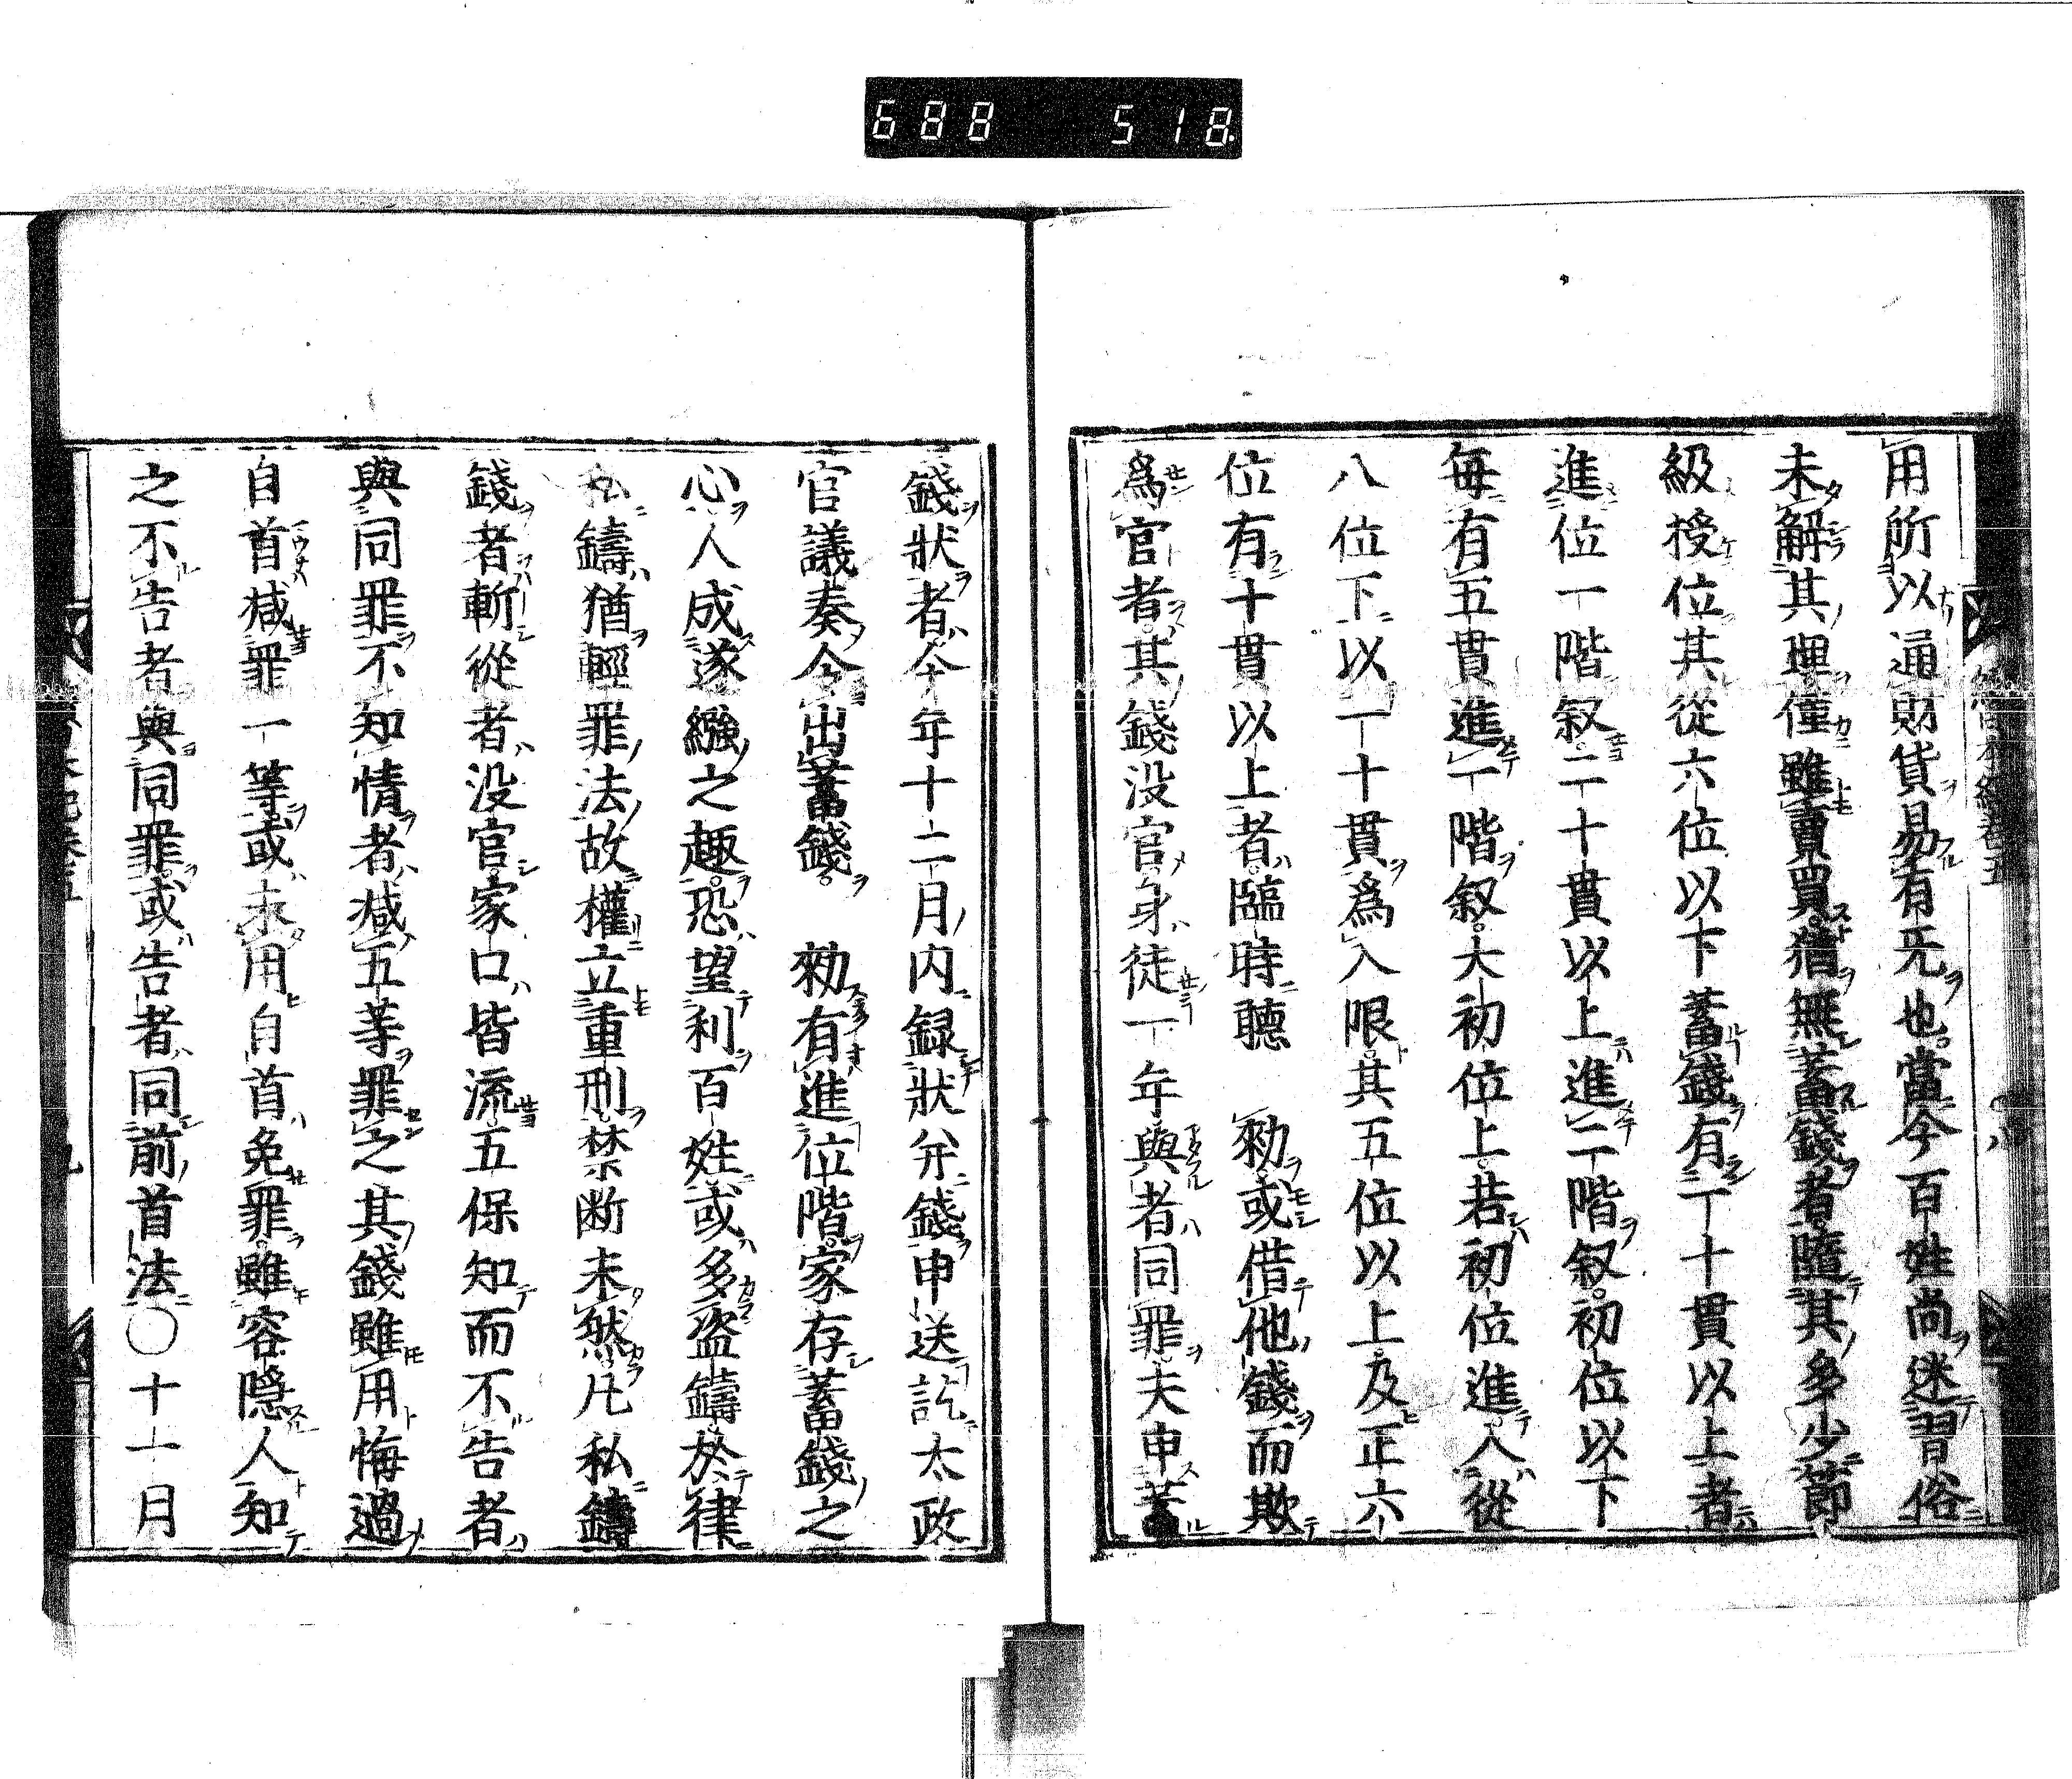 688 518
用所以通財貨易有无也當今百姓尚迷習俗
未解其理僅雖賣買猶無蓄錢者隨其多少節
級授位其從六位以下蓄錢有一十貫以上者
進位一階叙二十貫以上進二階叙初位以下
每有五貫進一階叙大初位上若初位進入從
八位下以一十貫爲入限其五位以上及正六
位有十貫以上者臨時聽 勑或借他錢而欺
爲官者其錢没官身徒一年與者同罪夫申蓄
錢狀者今年十二月内録狀并錢申送訖太政
官議奏令出蓄錢 勑有進位階家存蓄錢之
心人成逐繦之趣恐望利百姓或多盜鑄於律
私鑄猶輕罪法故權立重刑禁断未然凡私鑄
錢者斬從者没官家口皆流五保知而不告者
與同罪不知情者减五等罪之其錢雖用悔過
自首减罪一等或未用自首免罪雖容隱人知
之不告者與同罪或告者同前首法〇十一月